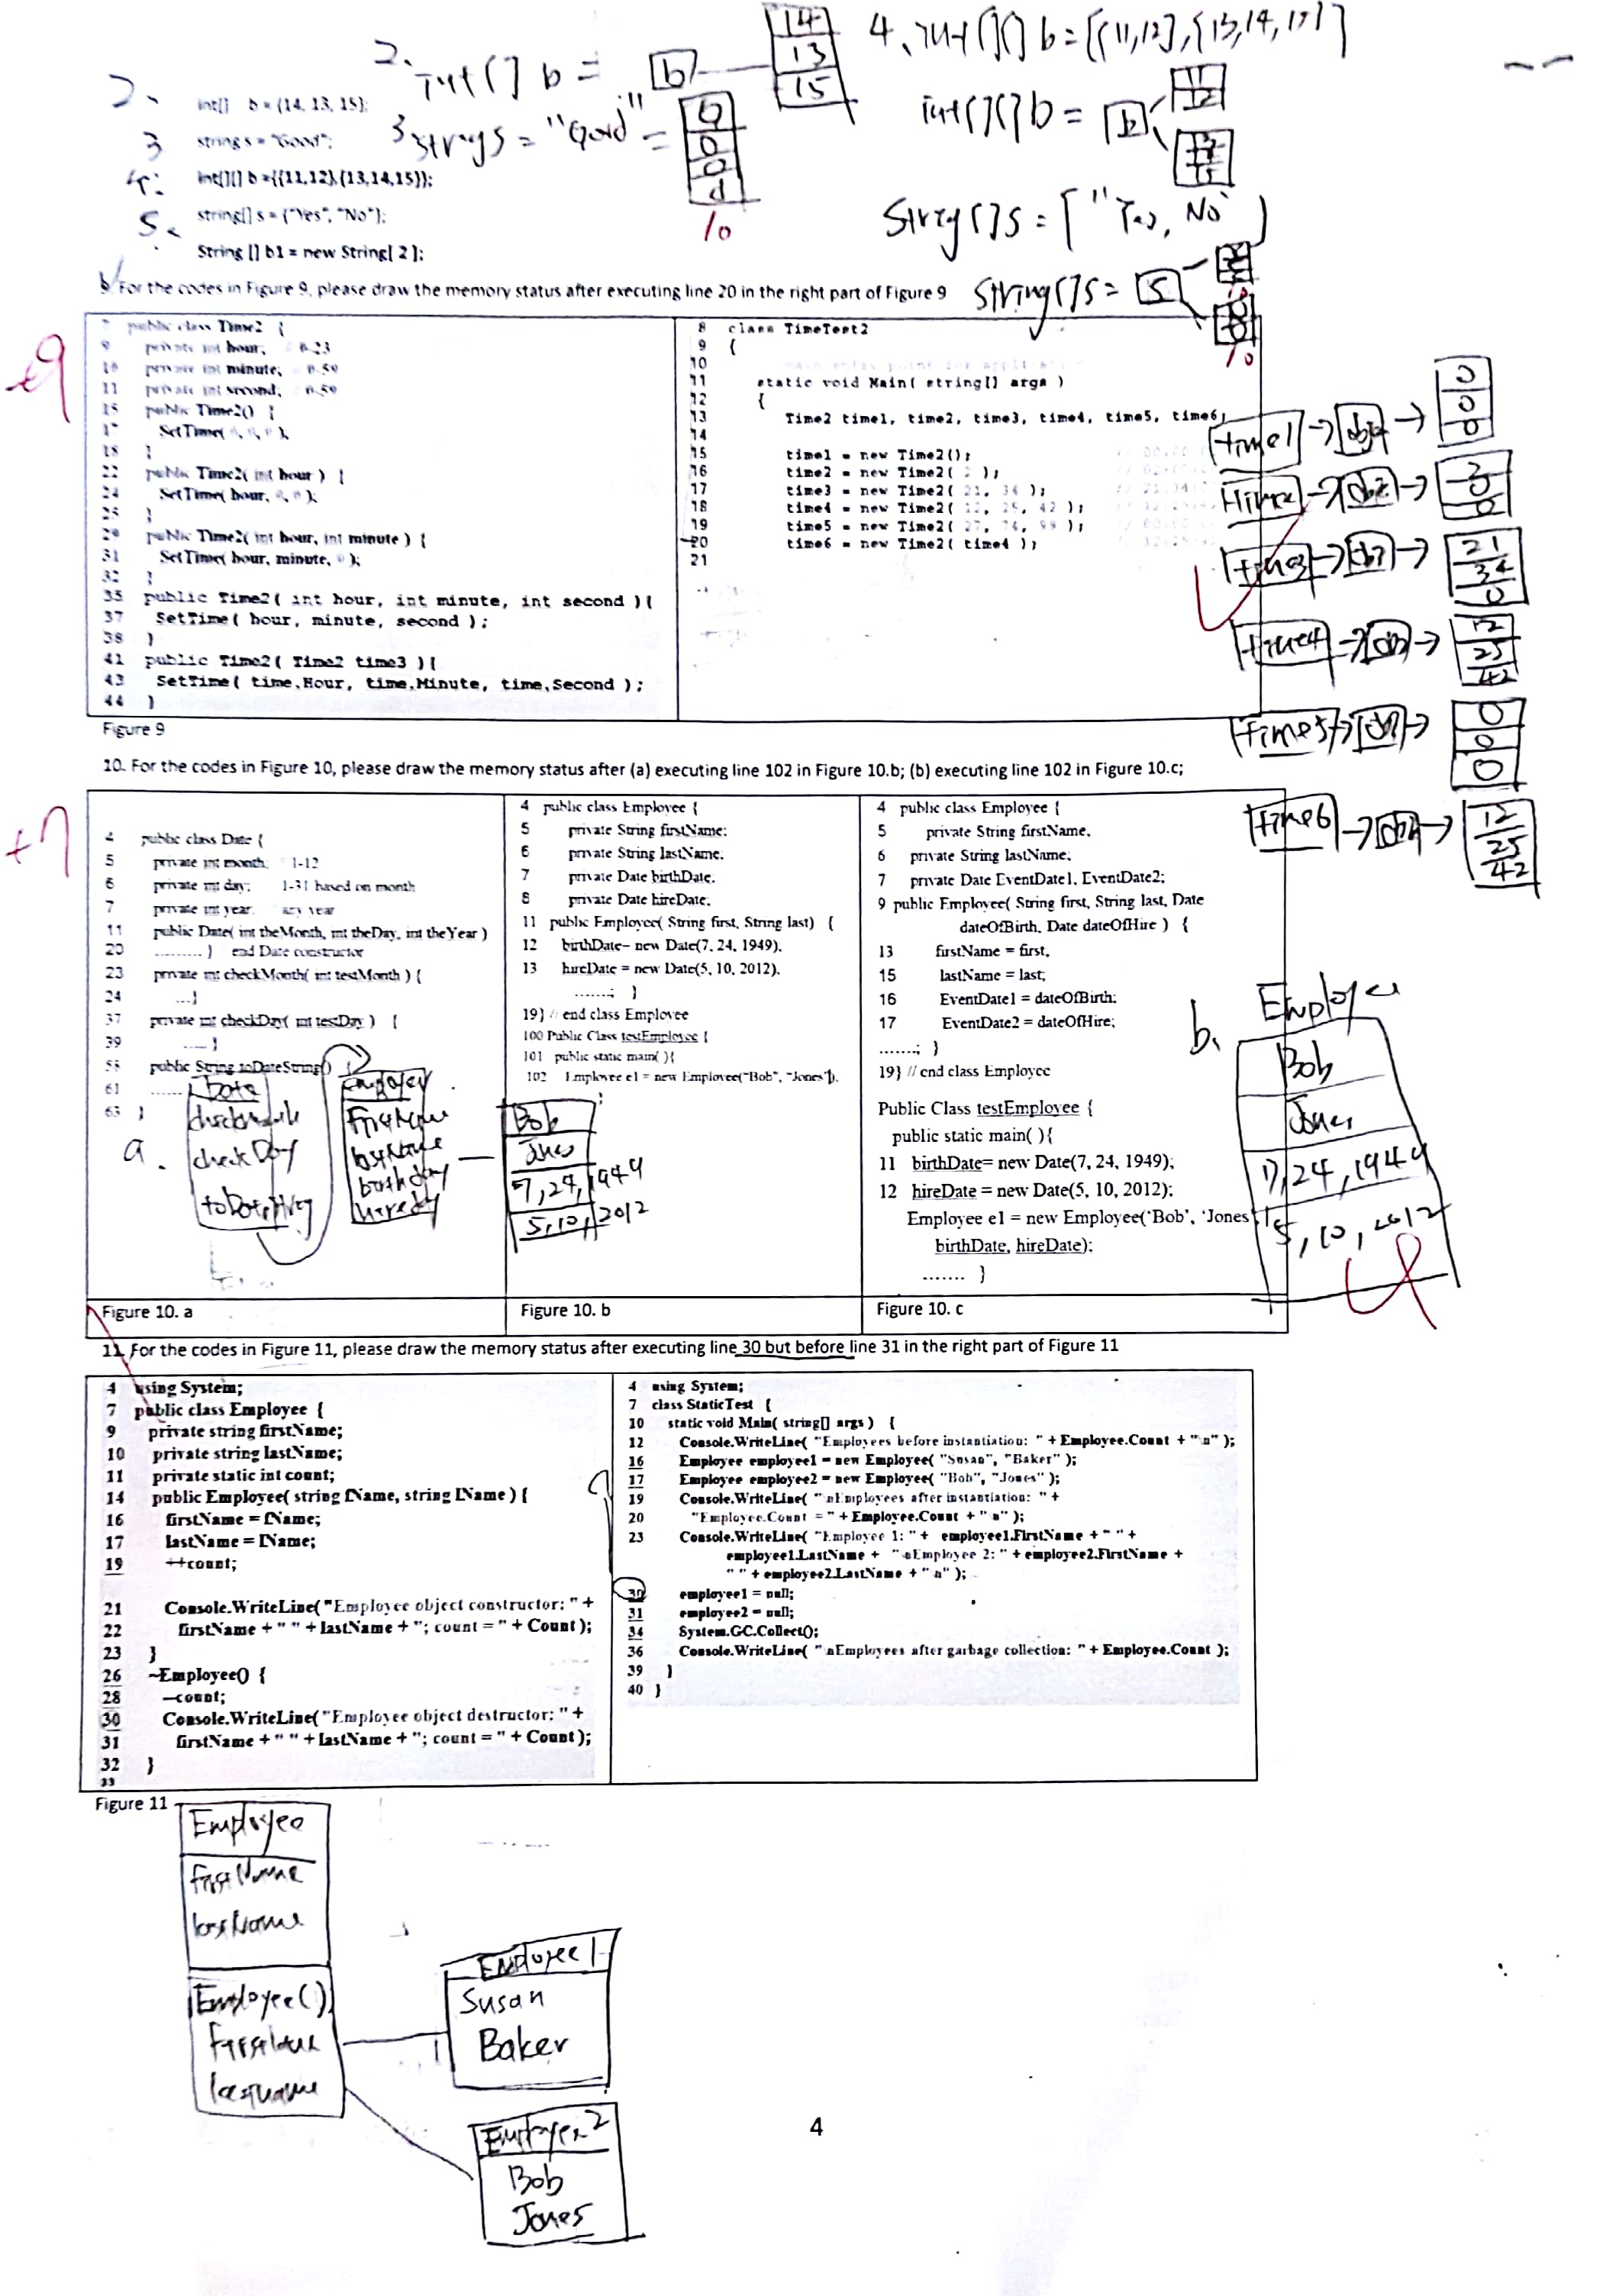 2.
int[] b =
b
14
13
15
4. int[][] b = [{11,12},{13,14,15}]
int[] b = {14, 13, 15};
3 String s = "Good" =
o
o
d
\0
int[][] b =
b
11
12
3
string s = "Good";
4.
int[][] b ={{11,12},{13,14,15}};
5.
string[] s = {"Yes", "No"};
String [] b1 = new String[ 2 ];
String[]s = [ "Yes, No
String[]s =
\0
\0
9. For the codes in Figure 9, please draw the memory status after executing line 20 in the right part of Figure 9
7 public class Time2 {
9 private int hour; 0-23
10 private int minute; 0-59
11 private int second; 0-59
15 public Time2() {
17 SetTime( 0, 0, 0 );
18 }
22 public Time2( int hour ) {
24 SetTime( hour, 0, 0 );
25 }
29 public Time2( int hour, int minute ) {
31 SetTime( hour, minute, 0 );
32 }
35 public Time2( int hour, int minute, int second ){
37 SetTime( hour, minute, second );
38 }
41 public Time2( Time2 time3 ){
43 SetTime( time.Hour, time.Minute, time.Second );
44 }
8 class TimeTest2
9 {
10 main entry point for application
11 static void Main( string[] args )
12 {
13 Time2 time1, time2, time3, time4, time5, time6;
14
15 time1 = new Time2();
16 time2 = new Time2( 2 );
17 time3 = new Time2( 21, 34 );
18 time4 = new Time2( 12, 25, 42 );
19 time5 = new Time2( 27, 74, 99 );
20 time6 = new Time2( time4 );
21
time1
0
0
0
0
0
time3
21
34
0
time4
12
25
42
time5
0
0
0
time6
12
25
42
Figure 9
10. For the codes in Figure 10, please draw the memory status after (a) executing line 102 in Figure 10.b; (b) executing line 102 in Figure 10.c;
+7
4 public class Date {
5 private int month; 1-12
6 private int day; 1-31 based on month
7 private int year; any year
11 public Date( int theMonth, int theDay, int theYear )
20 ......... } end Date constructor
23 private int checkMonth( int testMonth ) {
24 ...}
37 private int checkDay( int testDay ) {
39 ..... }
58 public String toDateString() {
61 ......
63 }
a.
Date
checkmonth
checkDay
toDateString
Employee
FirstName
lastName
birthday
hireday
Bob
Jones
7,24,1949
5,10,2012
Figure 10. a
4 public class Employee {
5 private String firstName;
6 private String lastName.
7 private Date birthDate.
8 private Date hireDate;
11 public Employee( String first, String last) {
12 birthDate= new Date(7, 24, 1949);
13 hireDate = new Date(5, 10, 2012).
.......; }
19} // end class Employee
100 Public Class testEmployee {
101 public static main( ){
102 Employee e1 = new Employee("Bob", "Jones");
Figure 10. b
4 public class Employee {
5 private String firstName.
6 private String lastName;
7 private Date EventDate1, EventDate2;
9 public Employee( String first, String last, Date
dateOfBirth, Date dateOfHire ) {
13 firstName = first,
15 lastName = last;
16 EventDate1 = dateOfBirth;
17 EventDate2 = dateOfHire;
.......; }
19} // end class Employee
Public Class testEmployee {
public static main( ){
11 birthDate= new Date(7, 24, 1949);
12 hireDate = new Date(5, 10, 2012);
Employee e1 = new Employee('Bob', 'Jones
birthDate, hireDate);
....... }
Figure 10. c
b.
Employee
Bob
Jones
7,24,1949
5,10,2012
11. For the codes in Figure 11, please draw the memory status after executing line 30 but before line 31 in the right part of Figure 11
4 using System;
7 public class Employee {
9 private string firstName;
10 private string lastName;
11 private static int count;
14 public Employee( string fName, string lName ) {
16 firstName = fName;
17 lastName = lName;
19 ++count;
21 Console.WriteLine( "Employee object constructor: " +
22 firstName + " " + lastName + "; count = " + Count );
23 }
26 ~Employee() {
28 --count;
30 Console.WriteLine( "Employee object destructor: " +
31 firstName + " " + lastName + "; count = " + Count );
32 }
33
4 using System;
7 class StaticTest {
10 static void Main( string[] args ) {
12 Console.WriteLine( "Employees before instantiation: " + Employee.Count + "\n" );
16 Employee employee1 = new Employee( "Susan", "Baker" );
17 Employee employee2 = new Employee( "Bob", "Jones" );
19 Console.WriteLine( "\nEmployees after instantiation: " +
20 "Employee.Count = " + Employee.Count + "\n" );
23 Console.WriteLine( "Employee 1: " + employee1.FirstName + " " +
employee1.LastName + "\nEmployee 2: " + employee2.FirstName +
" " + employee2.LastName + "\n" );
30 employee1 = null;
31 employee2 = null;
34 System.GC.Collect();
36 Console.WriteLine( "\nEmployees after garbage collection: " + Employee.Count );
39 }
40 }
Figure 11
Employee
FirstName
lastName
Employee()
Firstname
lastname
Employee1
Susan
Baker
Employee2
Bob
Jones
4